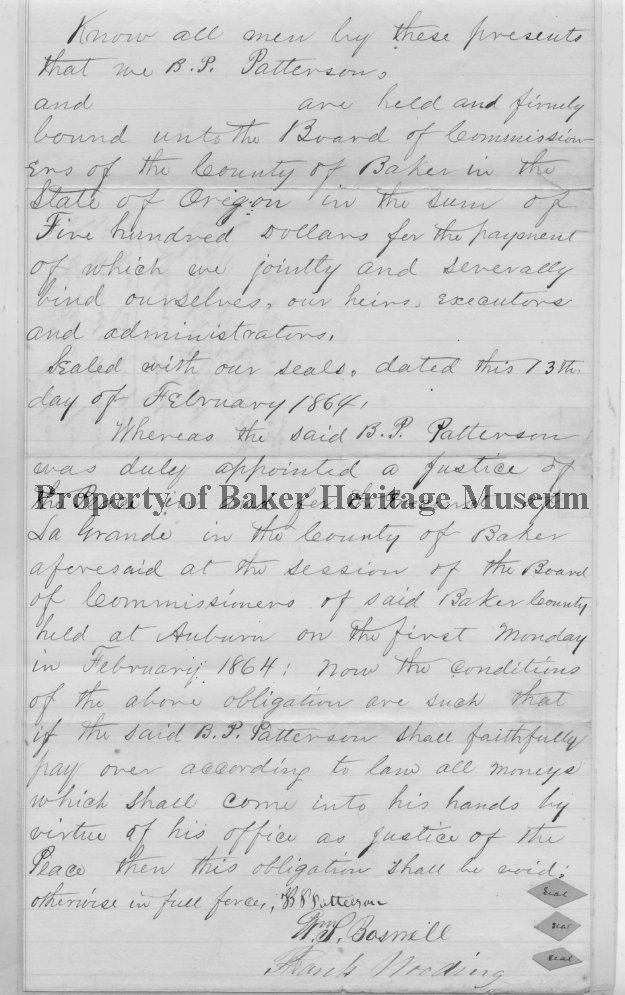 Know all men by these presents
that we B.P. Patterson,
and are held and firmly
bound unto the Board of Commission-
ers of the County of Baker in the
State of Origon in the sum of
Five hundred Dollars for the payment
of which we jointly and severally
bind ourselves, our heirs, executors
and administrators,
Sealed with our seals, dated this 13th.
day of February 1864,
Whereas the said B.P. Patterson
was duly appointed a Justice of
Property of Baker Heritage Museum
La Grande in the County of Baker
aforesaid at the session of the Board
of Commissioners of said Baker County
held at Auburn on the first Monday
in February 1864: Now the conditions
of the above obligation are such that
if the said B.P. Patterson shall faithfully
pay over according to law all moneys
which shall come into his hands by
virtue of his office as Justice of the
Peace then this obligation shall be void;
otherwise in full force, B P Patterson
Seal
Wm. P. Boswell
Seal
Frank Nooding
Seal